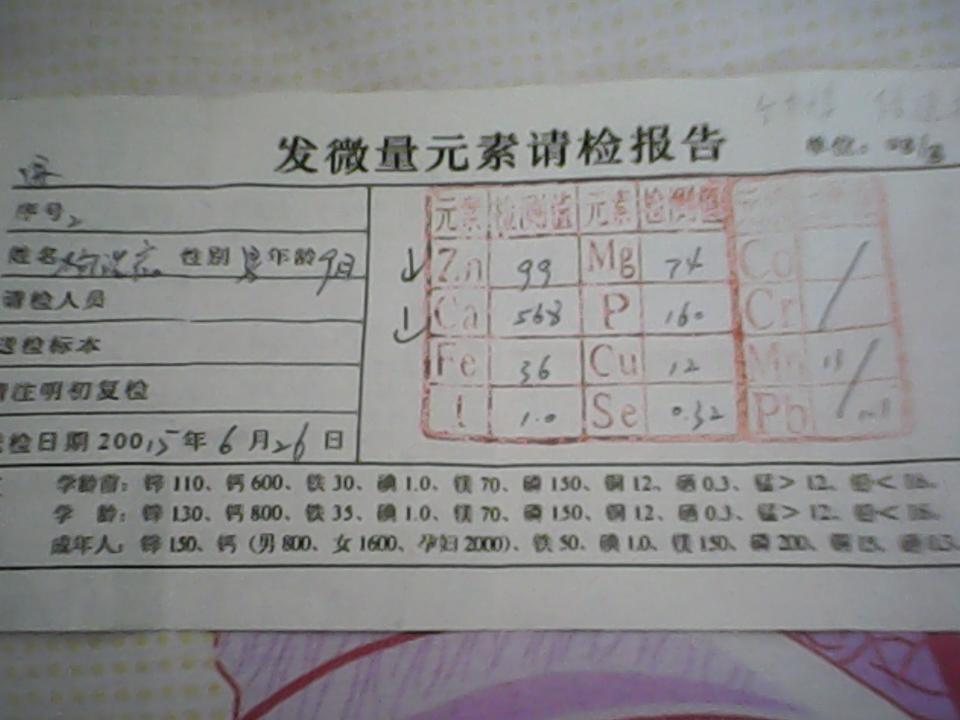 发微量元素请检报告
单位:
序号
姓名 性别 男 年龄 9月
请检人员
送检标本
请注明初复检
送检日期 20015年6月26日
元素 检测值 元素 检测值
↓ Zn 99 Mg 74 Co
↓ Ca 568 P 160 Cr
Fe 36 Cu 12 Mn 13
I 1.0 Se 0.32 Pb
学龄前: 锌 110、钙 600、铁 30、碘 1.0、镁 70、磷 150、铜 12、硒 0.3、锰> 12、铅<
学 龄: 锌 130、钙 800、铁 35、碘 1.0、镁 70、磷 150、铜 12、硒 0.3、锰> 12、铅<
成年人: 锌 150、钙 (男 800、女 1600、孕妇 2000)、铁 50、碘 1.0、镁 150、磷 200、铜